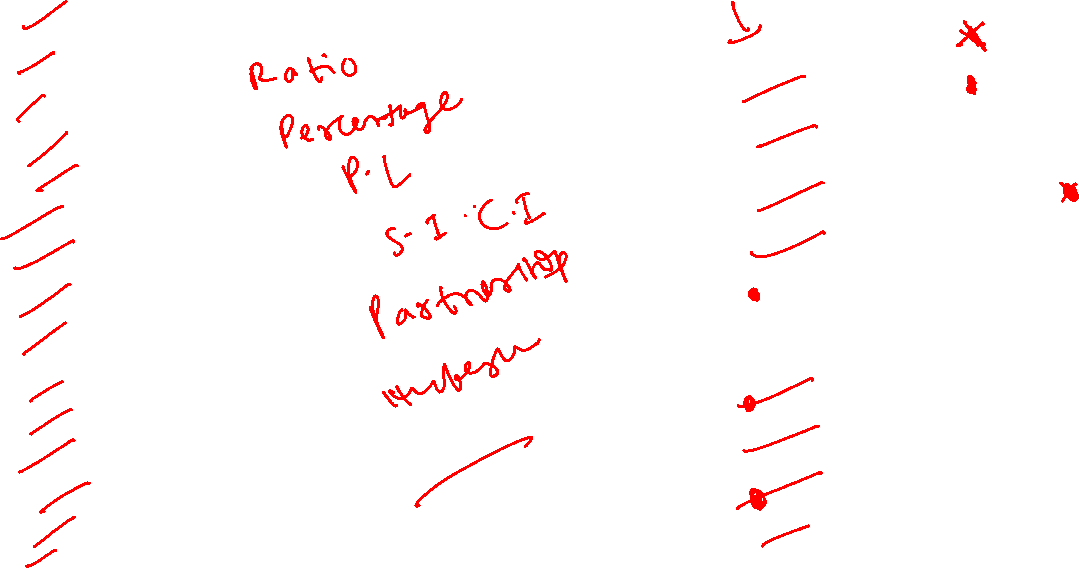 Ratio
Percentage
P.L
S.I .C.I
Partnership